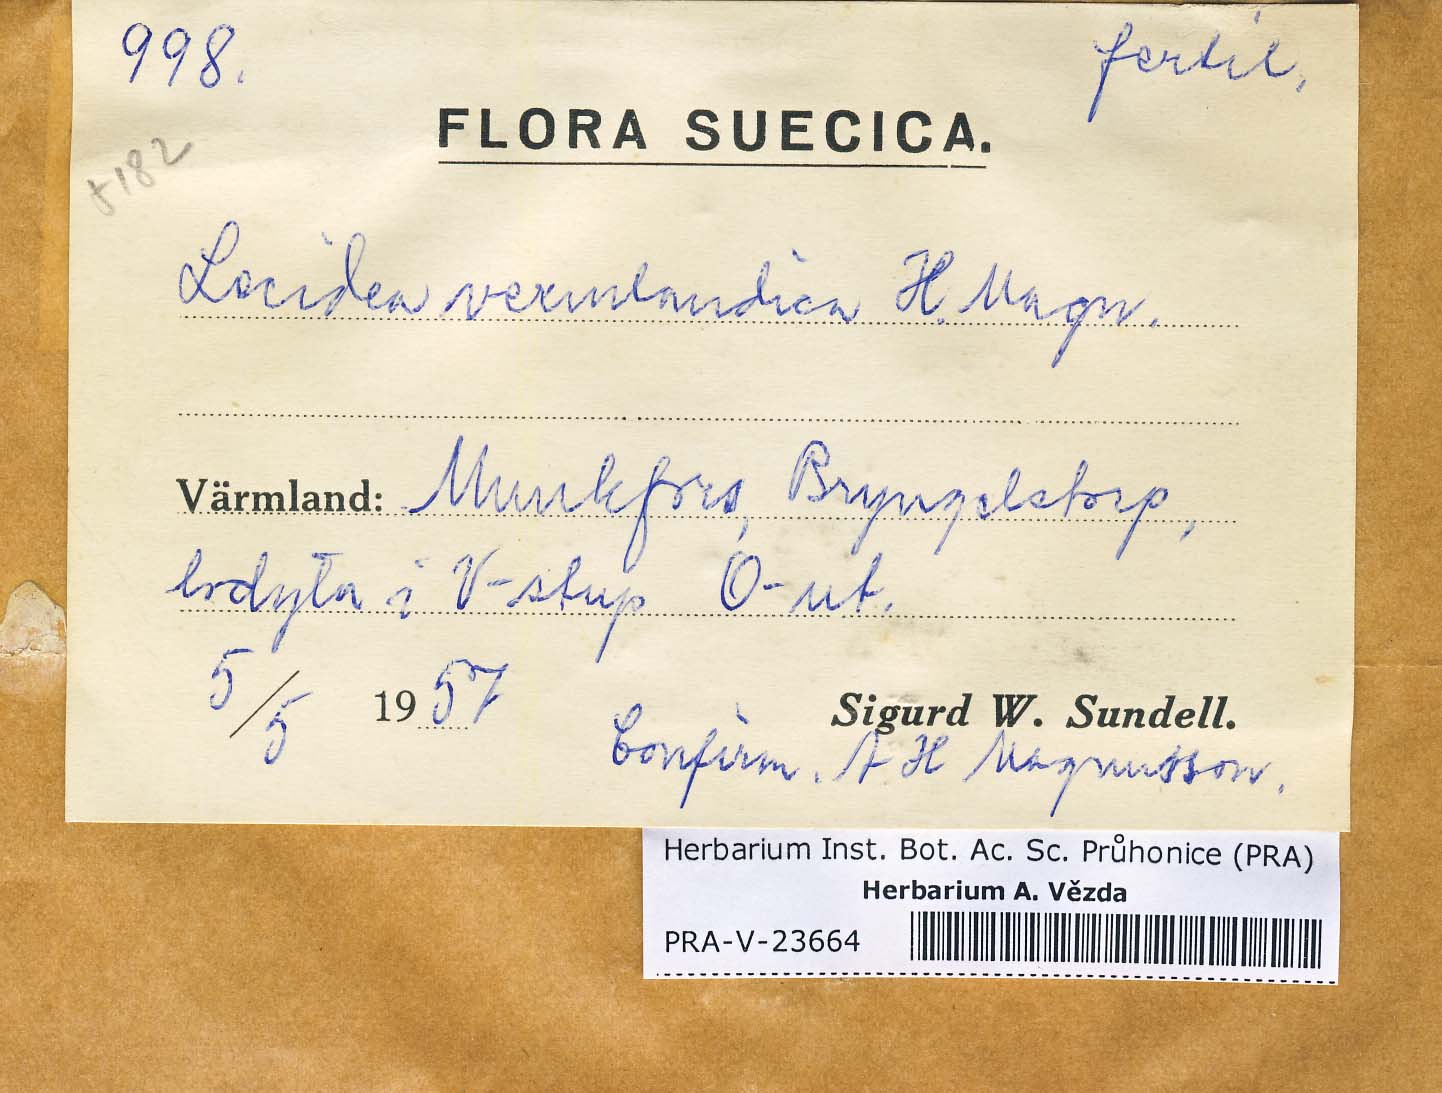 998.
fertil.
FLORA SUECICA.
t 182
Lecidea vermlandica H. Magn.
Värmland: Munkfors, Bryngelstorp,
lodyta i V-stup O-ut.
5/5 1957
Sigurd W. Sundell.
Confirm. A H Magnusson.
Herbarium Inst. Bot. Ac. Sc. Průhonice (PRA)
Herbarium A. Vězda
PRA-V-23664